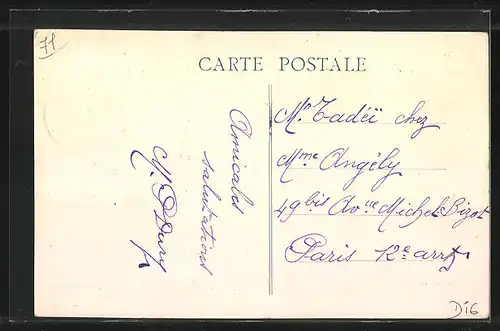 71
CARTE POSTALE
Amicales
salutations
M. Dury
Mr Tadéï chez
Mme Angély
49bis Avue Michel-Bizot
Paris 12e arrt
D16